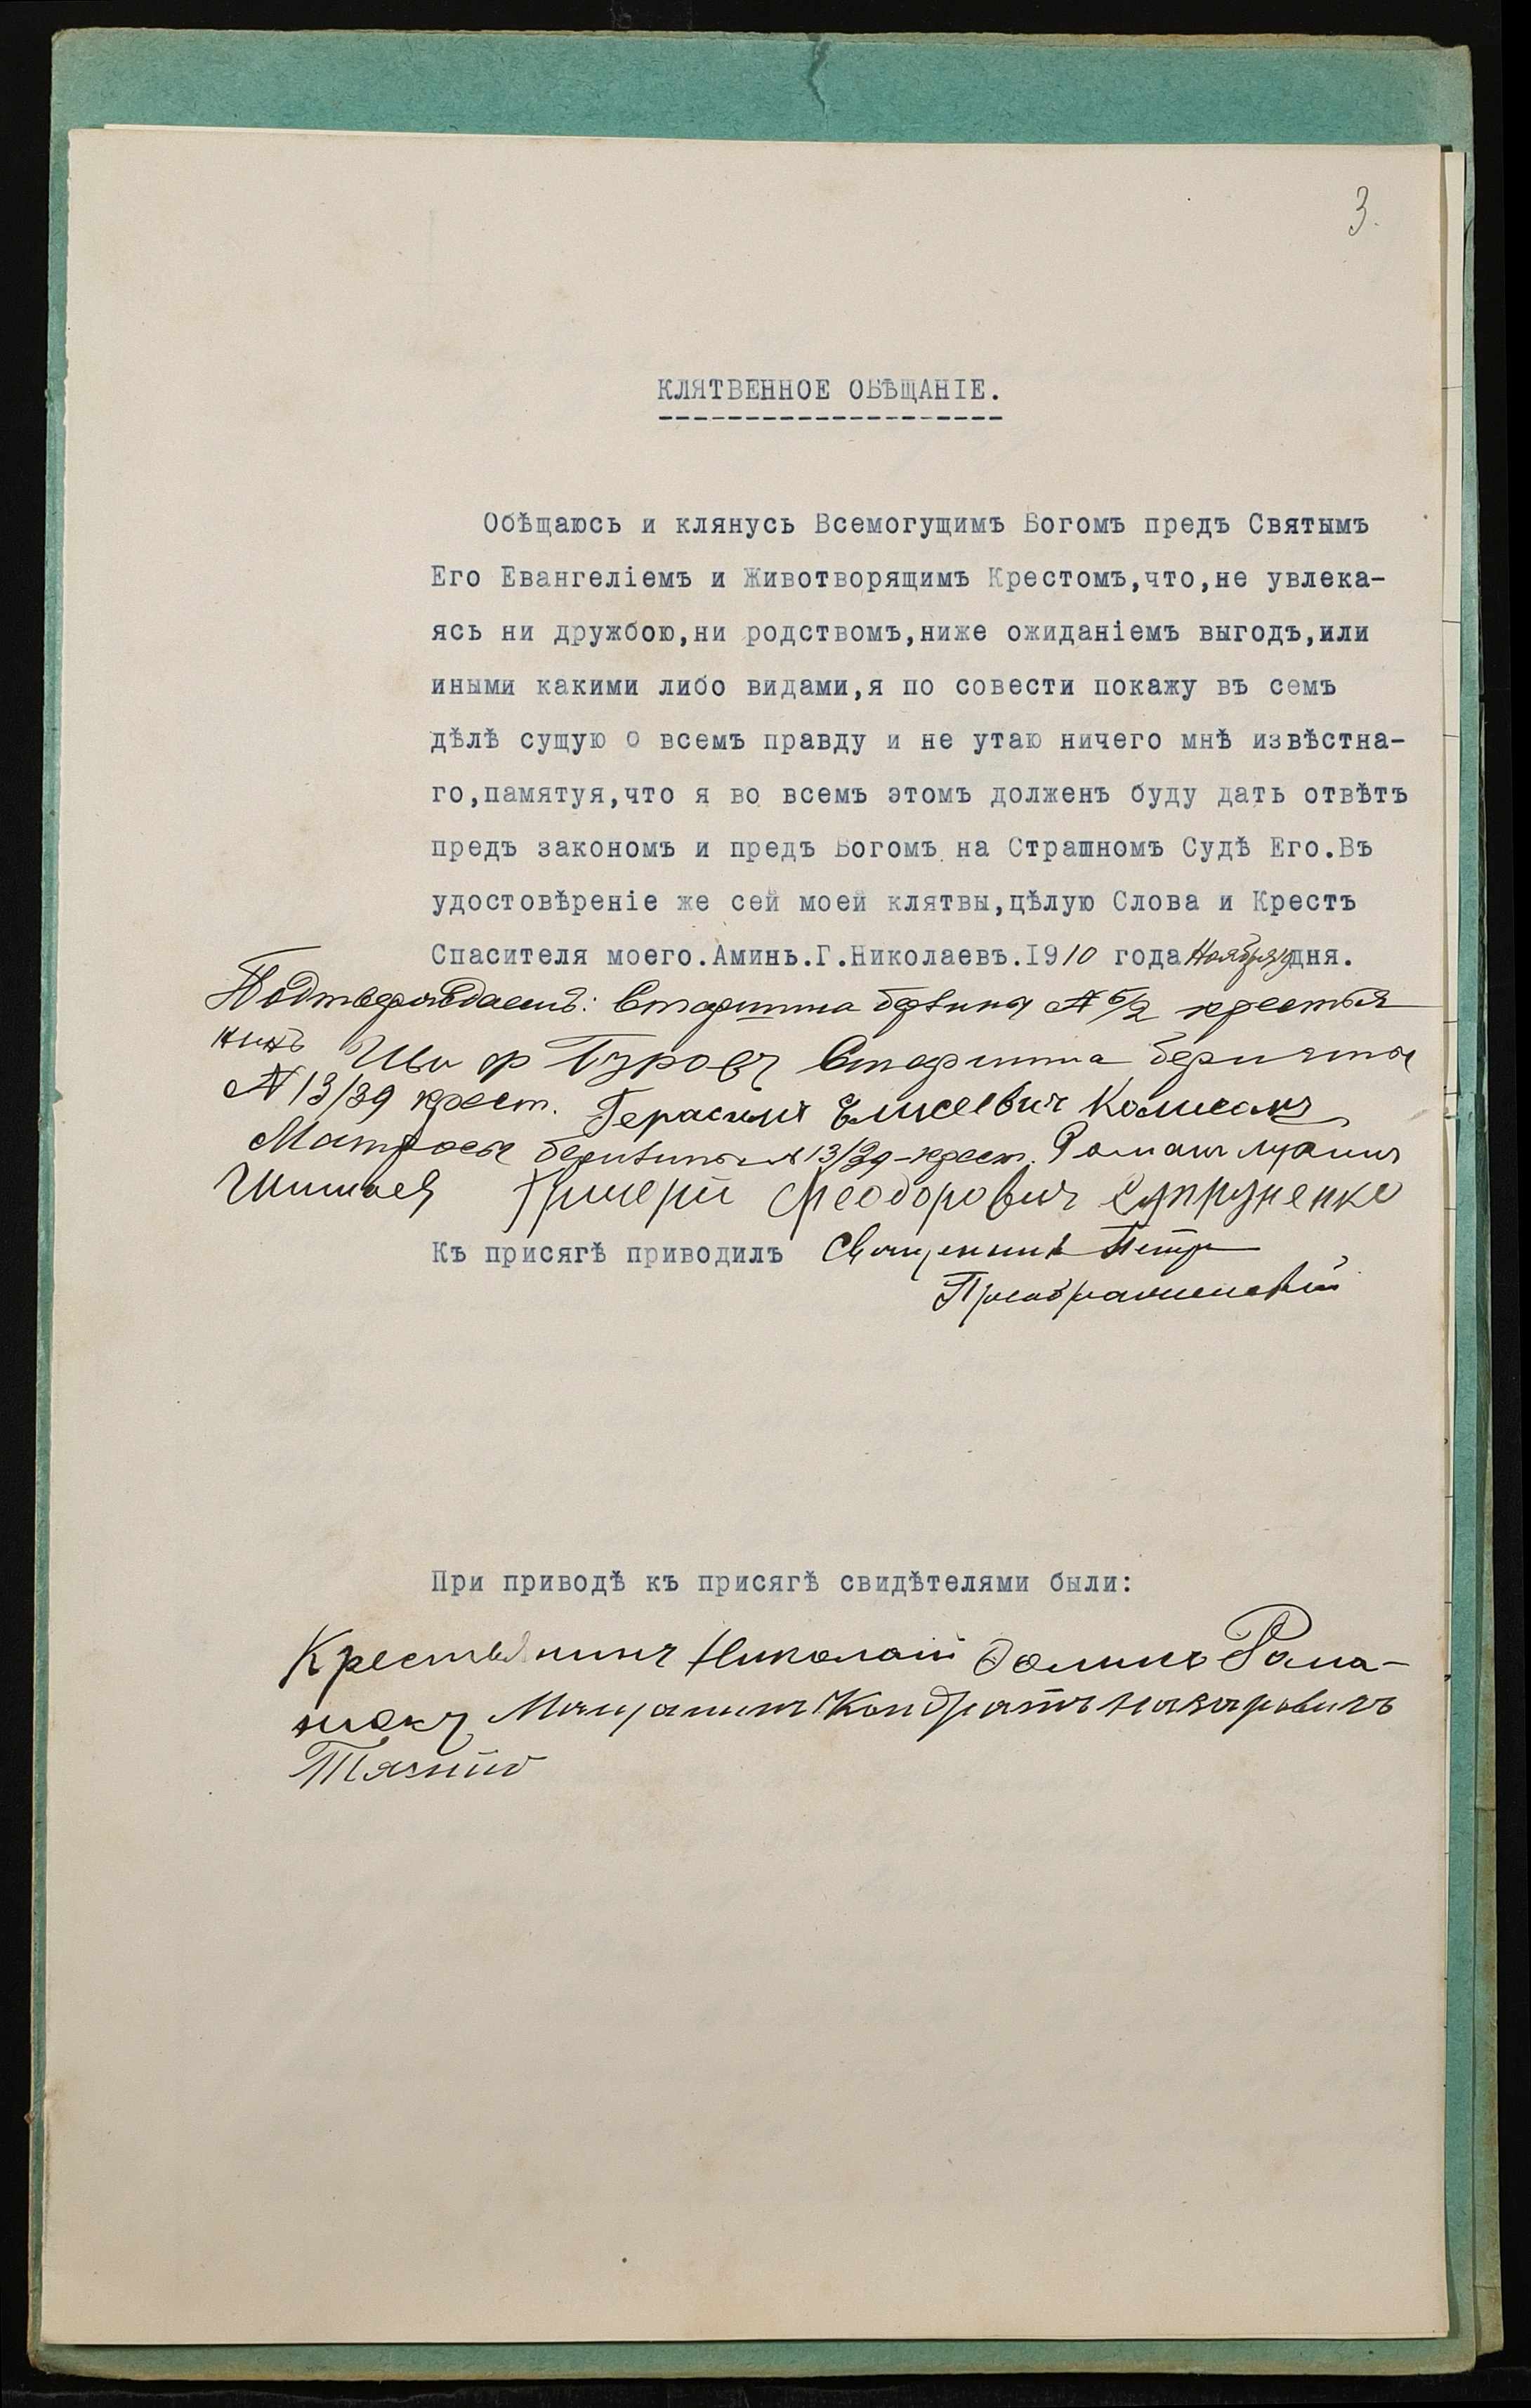 3.
КЛЯТВЕННОЕ ОБѢЩАНІЕ.
Обѣщаюсь и клянусь Всемогущимъ Богомъ предъ Святымъ
Его Евангеліемъ и Животворящимъ Крестомъ,что,не увлека-
ясь ни дружбою,ни родствомъ,ниже ожиданіемъ выгодъ,или
иными какими либо видами,я по совести покажу въ семъ
дѣлѣ сущую о всемъ правду и не утаю ничего мнѣ извѣстна-
го,памятуя,что я во всемъ этомъ долженъ буду дать отвѣтъ
предъ закономъ и предъ Богомъ на Страшномъ Судѣ Его.Въ
удостовѣреніе же сей моей клятвы,цѣлую Слова и Крестъ
Спасителя моего.Аминь.Г.Николаевъ.1910 года Ноября дня.
Старшина № 6/2 крестья
нинъ Старшина
№ 13/39 крест. Герасимъ Елисеевичъ
Матросы 13/39 - крест. Романъ
Григорій Феодоровичъ Супруненко
Къ присягѣ приводилъ Священникъ Петръ
Преображенскій
При приводѣ къ присягѣ свидѣтелями были:
Крестьянинъ Николай Рома-
нюкъ Мѣщанинъ Кондратъ Назаровичъ